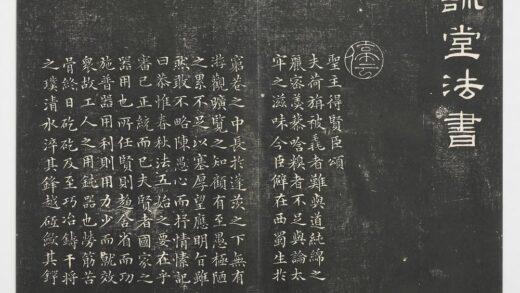 訓堂法書
停云
聖主得賢臣頌
夫荷旃被毳者難與道純綿之
麗密羹藜唅糗者不足與論太
牢之滋味今臣僻在西蜀生於
窮巷之中長於蓬茨之下無有
游觀曠覽之知顧有至愚極陋
之累不足以塞厚望應明旨雖
然敢不略陳愚心而抒情愫記
曰恭惟春秋法五始之要在乎
審己正統而已夫賢者國家之
器用也所任賢則趨舍省而功
施普器用利則用力少而就效
衆故工人之用鈍器也勞筋苦
骨終日矻矻及至巧冶鑄干將
之璞清水淬其鋒越砥斂其鍔